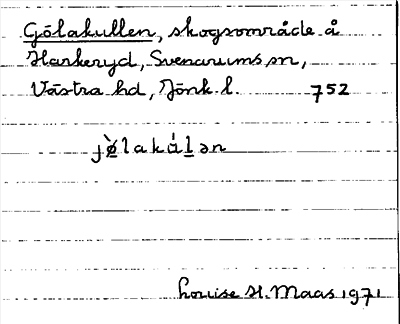 Gölakullen, skogsområde å
Harkeryd, Svenarums sn,
Västra hd, Jönk. l. 752
jø̀lakál̲ən
Louise H. Maas 1971